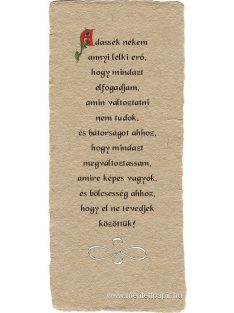 Adassék nékem
annyi lelki erő,
hogy mindazt
elfogadjam,
amin változtatni
nem tudok,
és bátorságot ahhoz,
hogy mindazt
megváltoztassam,
amire képes vagyok,
és bölcsesség ahhoz,
hogy el ne tévedjek
közöttük!
www.meritettpapir.hu